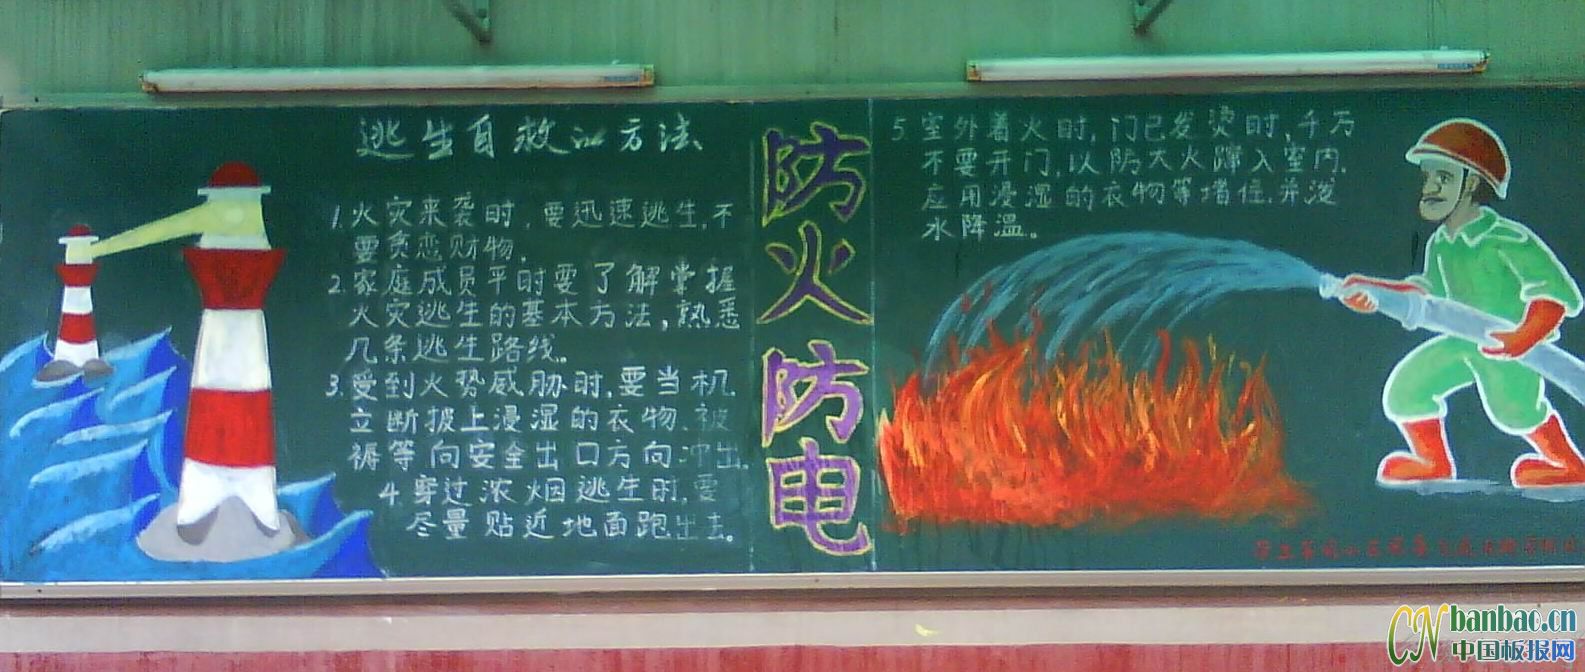 逃生自救的方法
1.火灾来袭时,要迅速逃生,不
要贪恋财物.
2.家庭成员平时要了解掌握
火灾逃生的基本方法,熟悉
几条逃生路线。
3.受到火势威胁时,要当机
立断披上浸湿的衣物、被
褥等向安全出口方向冲出.
4.穿过浓烟逃生时,要
尽量贴近地面跑出去。
防火防电
5.室外着火时,门已发烫时,千万
不要开门,以防大火蹿入室内.
应用浸湿的衣物等堵住.并浇
水降温。
CN banbao.cn
中国板报网